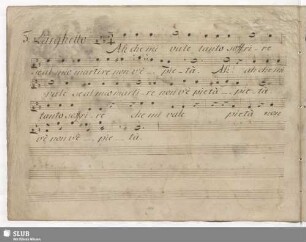 5. Larghetto
Ah che mi vale tanto soffri - re
se al mio martire non v'è - - pie - tà. Ah! ah che mi
vale se al mio marti - re non v'è pietà - - pie - tà
tanto soffri - re che mi vale pietà non
v'è non v'è - - pie - tà.
SLUB